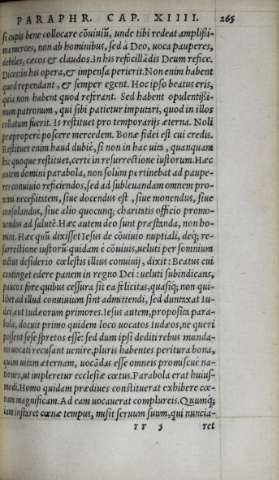 PARAPHR. CAP. XIIII. 265
si cupis bene collocare cōuiuiū, unde tibi redeat amplissi-
ma merces, non ab hominibus, sed á Deo, uoca pauperes,
debiles, cæcos & claudos. In his reficillādis Deum refice.
Dicenin his opera, & impensa perierit. Non enim habent
quod rependant, & semper egent. Hoc ipso beatus eris,
quia non habent quod referant. Sed habent opulentissi-
mum patronum, qui sibi patietur imputari, quod in illos
collatum fuerit. Is restituet pro temporarijs æterna. Noli
præpropere poscere mercedem. Bonæ fidei est cui credis.
Restituet enim haud dubiè, si non in hac uita, quanquam
hic quoque restituet, certè in resurrectione iustorum. Hæc
autem domini parabola, non solùm pertinebat ad paupe-
res conuiuio reficiendos, sed ad subleuandam omnem pro-
ximi necessitatem, siue docendus est, siue monendus, siue
consolandus, siue alio quocunq; charitatis officio promo-
uendus ad salutē. Hæc autem deo sunt præstanda, non ho-
mini. Hæc quū dixisset Iesus de conuiuio nuptiali, deq; re-
surrectione iustorū quidam è cōuiuis, ueluti per somnium
desiderio cœlestis illius conuiuij, dixit: Beatus cui
continget edere panem in regno Dei: ueluti subindicans,
paucos fore quibus cessura sit ea felicitas, quasiq; non qui-
libet ad illud conuiuium sint admittendi, sed duntaxat Iu-
dæi, aut Iudæorum primores. Iesus autem, proposita para-
bola, docuit primo quidem loco uocatos Iudæos, ne queri
possent sese spretos esse: sed dum ipsi dediti rebus munda-
nis uocati recusant uenire, pluris habentes peritura bona,
quàm uitam æternam, uocādas esse omneis promiscue na-
tiones, ut impleretur ecclesiæ cœtus. Parabola erat huius-
modi. Homo quidam prædiues constituerat exhibere cœ-
nam magnificam. Ad eam uocauerat complureis. Quumq;
iam instaret cœnæ tempus, misit seruum suum, qui nuncia-
YY 3 ret